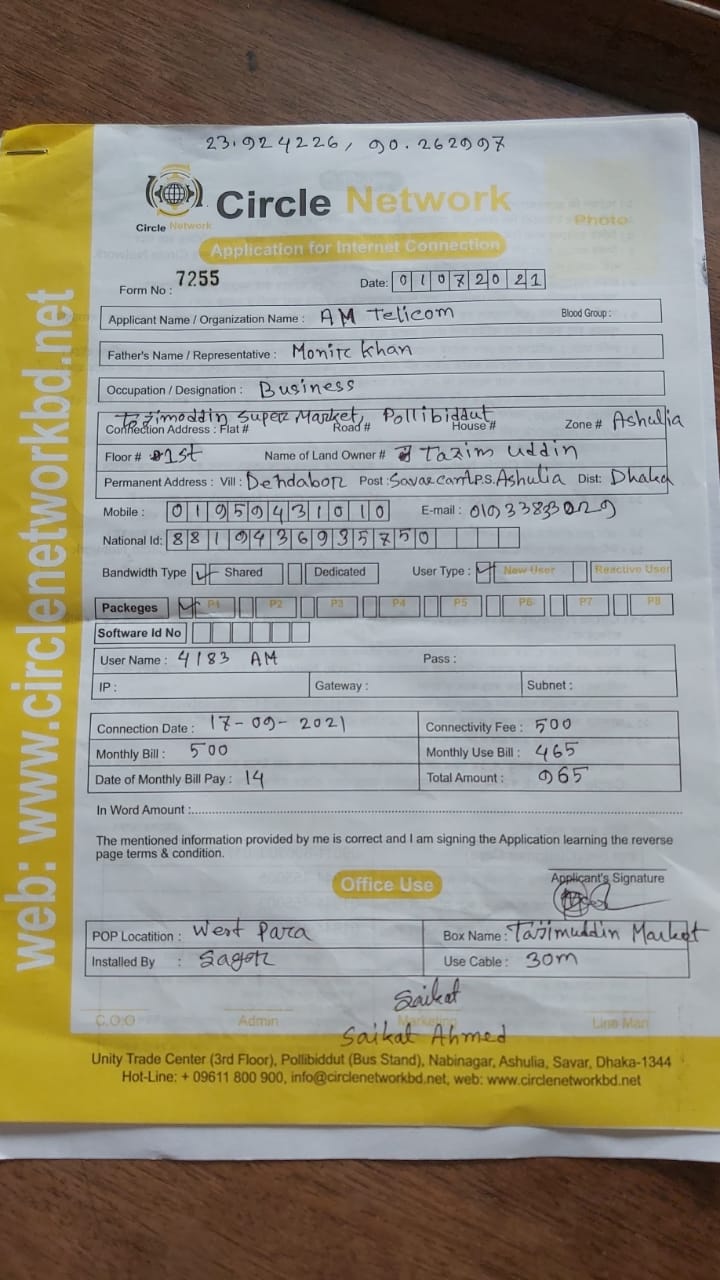 23.924226, 90.262997
Circle Network
Circle Network
Photo
Application for Internet Connection
Form No : 7255
Date: 01072021
Applicant Name / Organization Name : AM Telicom Blood Group :
Father's Name / Representative : Monir Khan
Occupation / Designation : Business
Tazimoddin Super Market, Pollibiddut
Connection Address : Flat # Road # House # Zone # Ashulia
Floor # 1st Name of Land Owner # Tazim uddin
Permanent Address : Vill : Dendabor Post : Savar cant P.S. Ashulia Dist: Dhaka
Mobile : 01959431010 E-mail : 01933833029
National Id: 8819436935750
Bandwidth Type Shared Dedicated User Type : New User Reactive User
Packeges P1 P2 P3 P4 P5 P6 P7 P8
Software Id No
User Name : 4183 AM Pass :
IP : Gateway : Subnet :
Connection Date : 17-09-2021 Connectivity Fee : 500
Monthly Bill : 500 Monthly Use Bill : 465
Date of Monthly Bill Pay : 14 Total Amount : 965
In Word Amount :
The mentioned information provided by me is correct and I am signing the Application learning the reverse
page terms & condition.
Applicant's Signature
Office Use
POP Locatition : West Para Box Name : Tajimuddin Market
Installed By : Sagor Use Cable : 30m
Saikat
C.O.O Admin Marketing Line Man
Saikat Ahmed
Unity Trade Center (3rd Floor), Pollibiddut (Bus Stand), Nabinagar, Ashulia, Savar, Dhaka-1344
Hot-Line: + 09611 800 900, info@circlenetworkbd.net, web: www.circlenetworkbd.net
web: www.circlenetworkbd.net